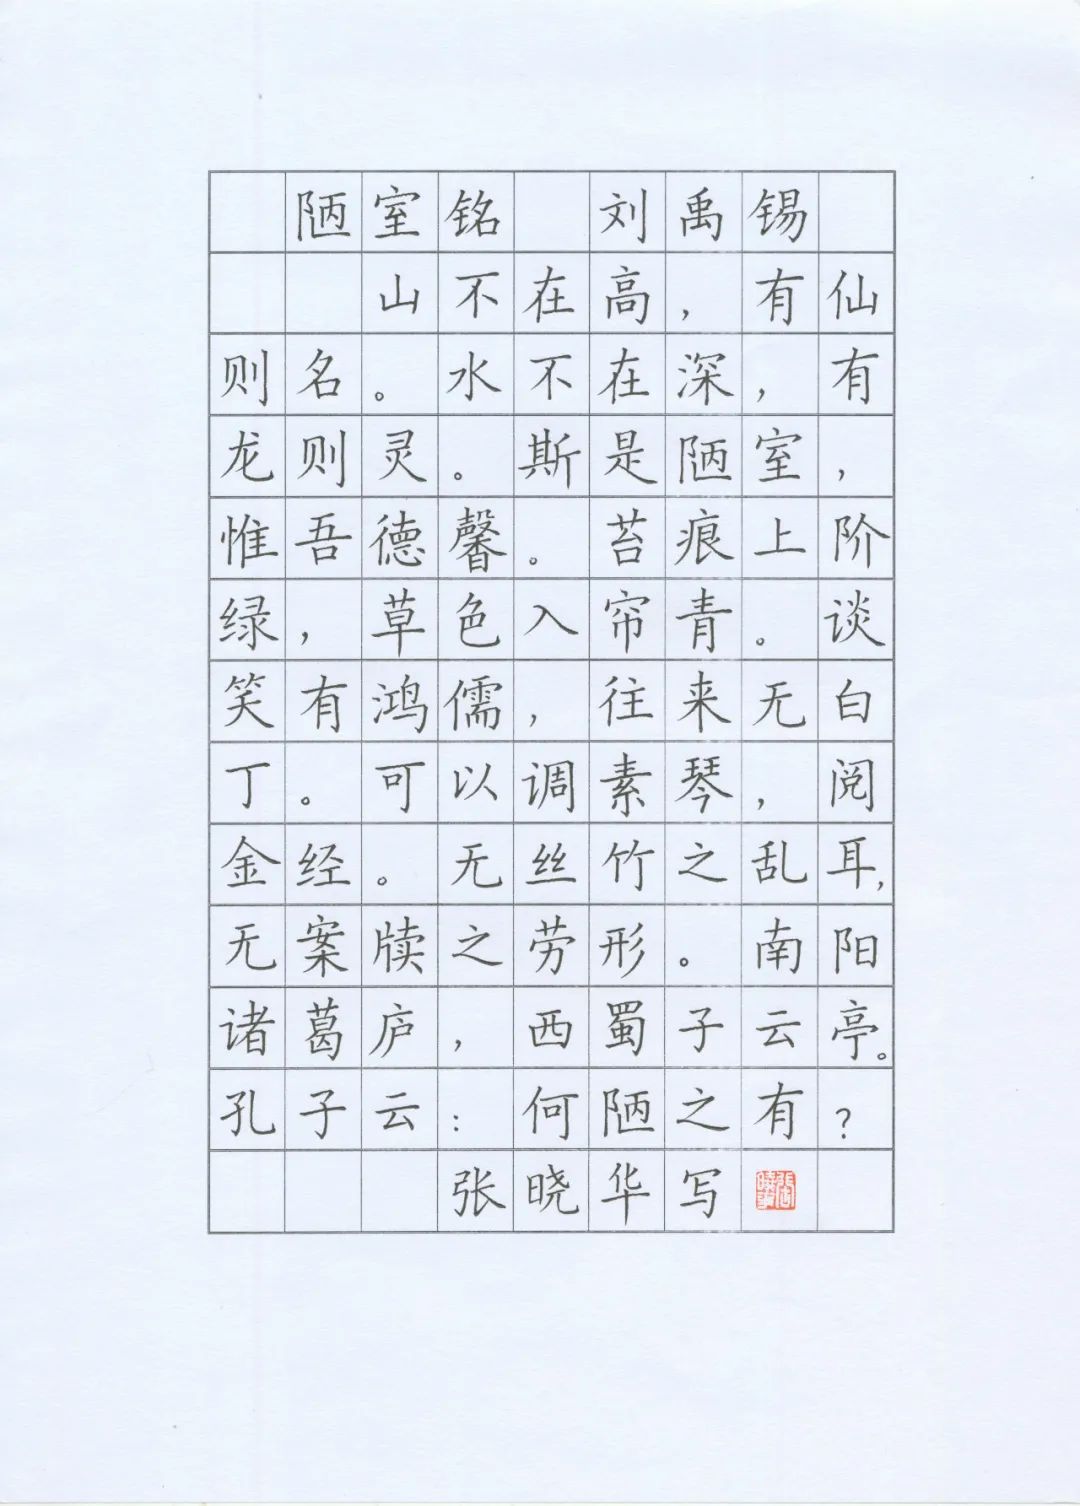 陋室铭 刘禹锡
山不在高，有仙
则名。水不在深，有
龙则灵。斯是陋室，
惟吾德馨。苔痕上阶
绿，草色入帘青。谈
笑有鸿儒，往来无白
丁。可以调素琴，阅
金经。无丝竹之乱耳，
无案牍之劳形。南阳
诸葛庐，西蜀子云亭。
孔子云：何陋之有？
张晓华写